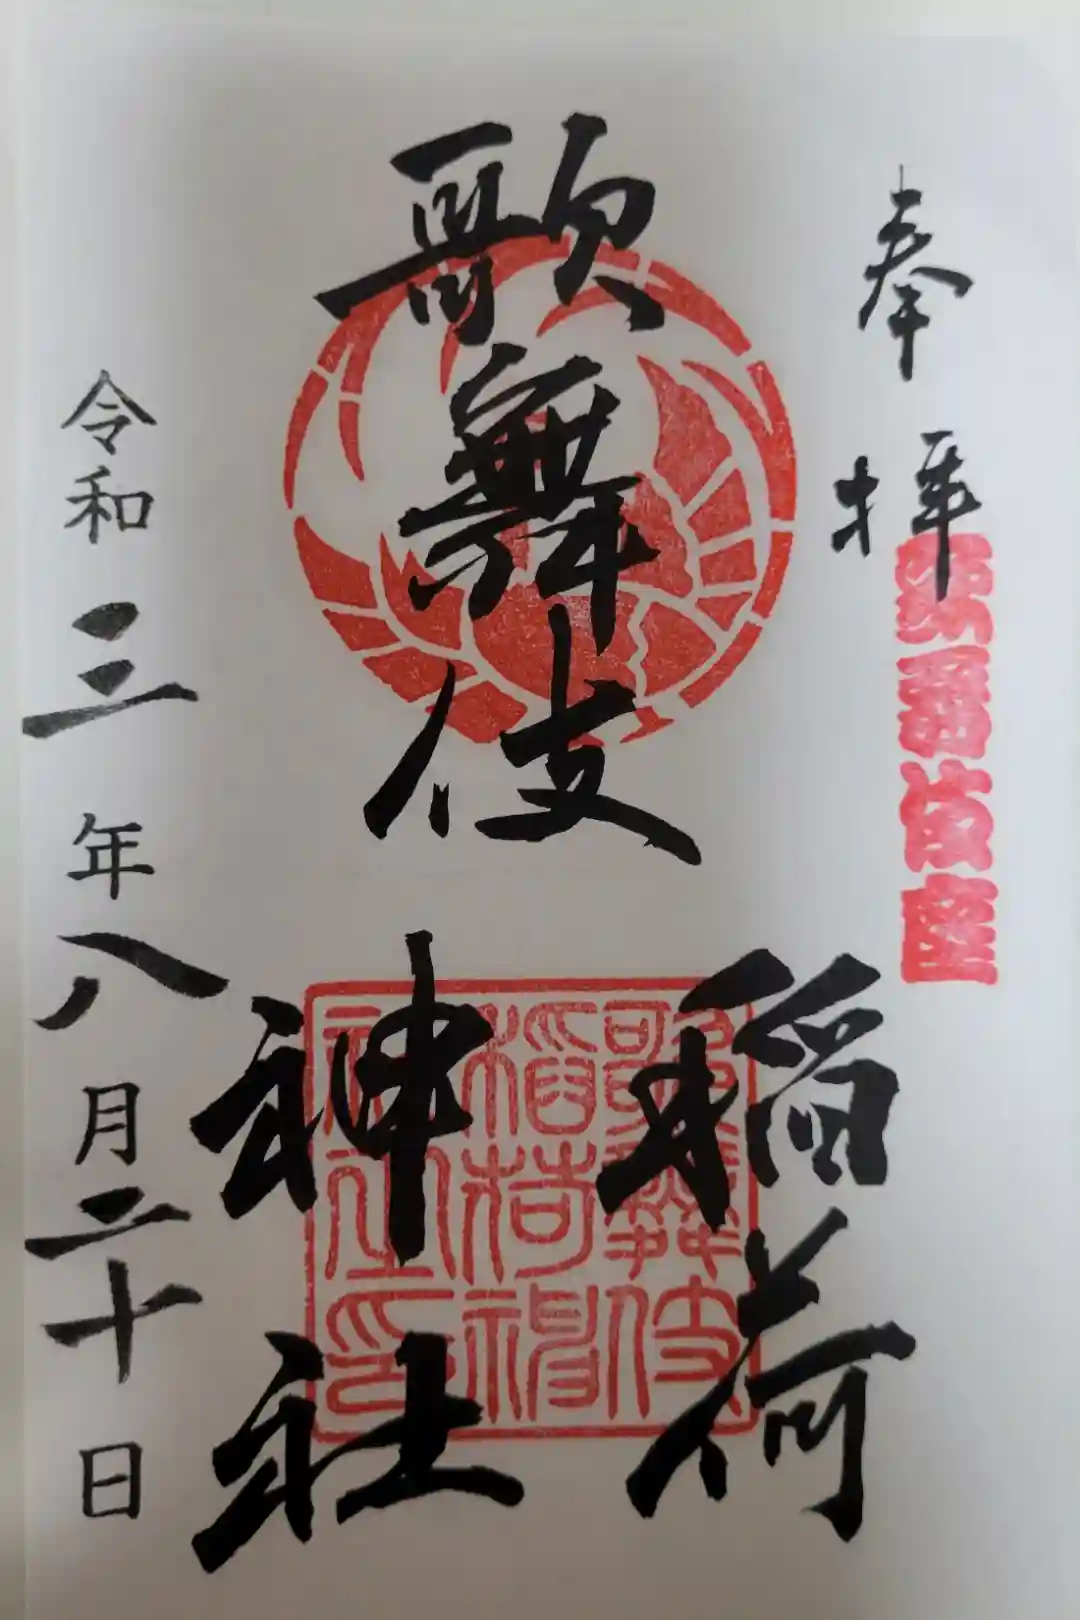 奉拝
歌舞伎座
歌舞伎
稲荷
神社
歌舞伎
稲荷神
社之印
令和三年八月二十日